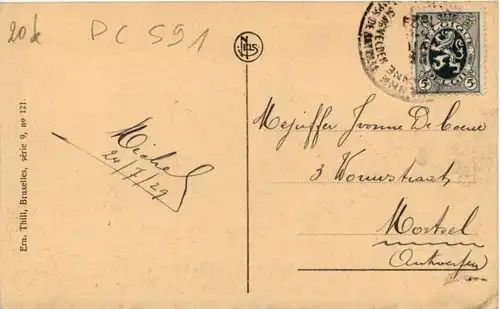 20
PC 591
Nels
Ern. Thill, Bruxelles, série 9, no 121.
Michel
24/7/29
SLAGVELDEN
BELGIE
5 5
Mejuffer Jvonne De Coene
3 Wouwstraat,
Mortsel
Antwerpen